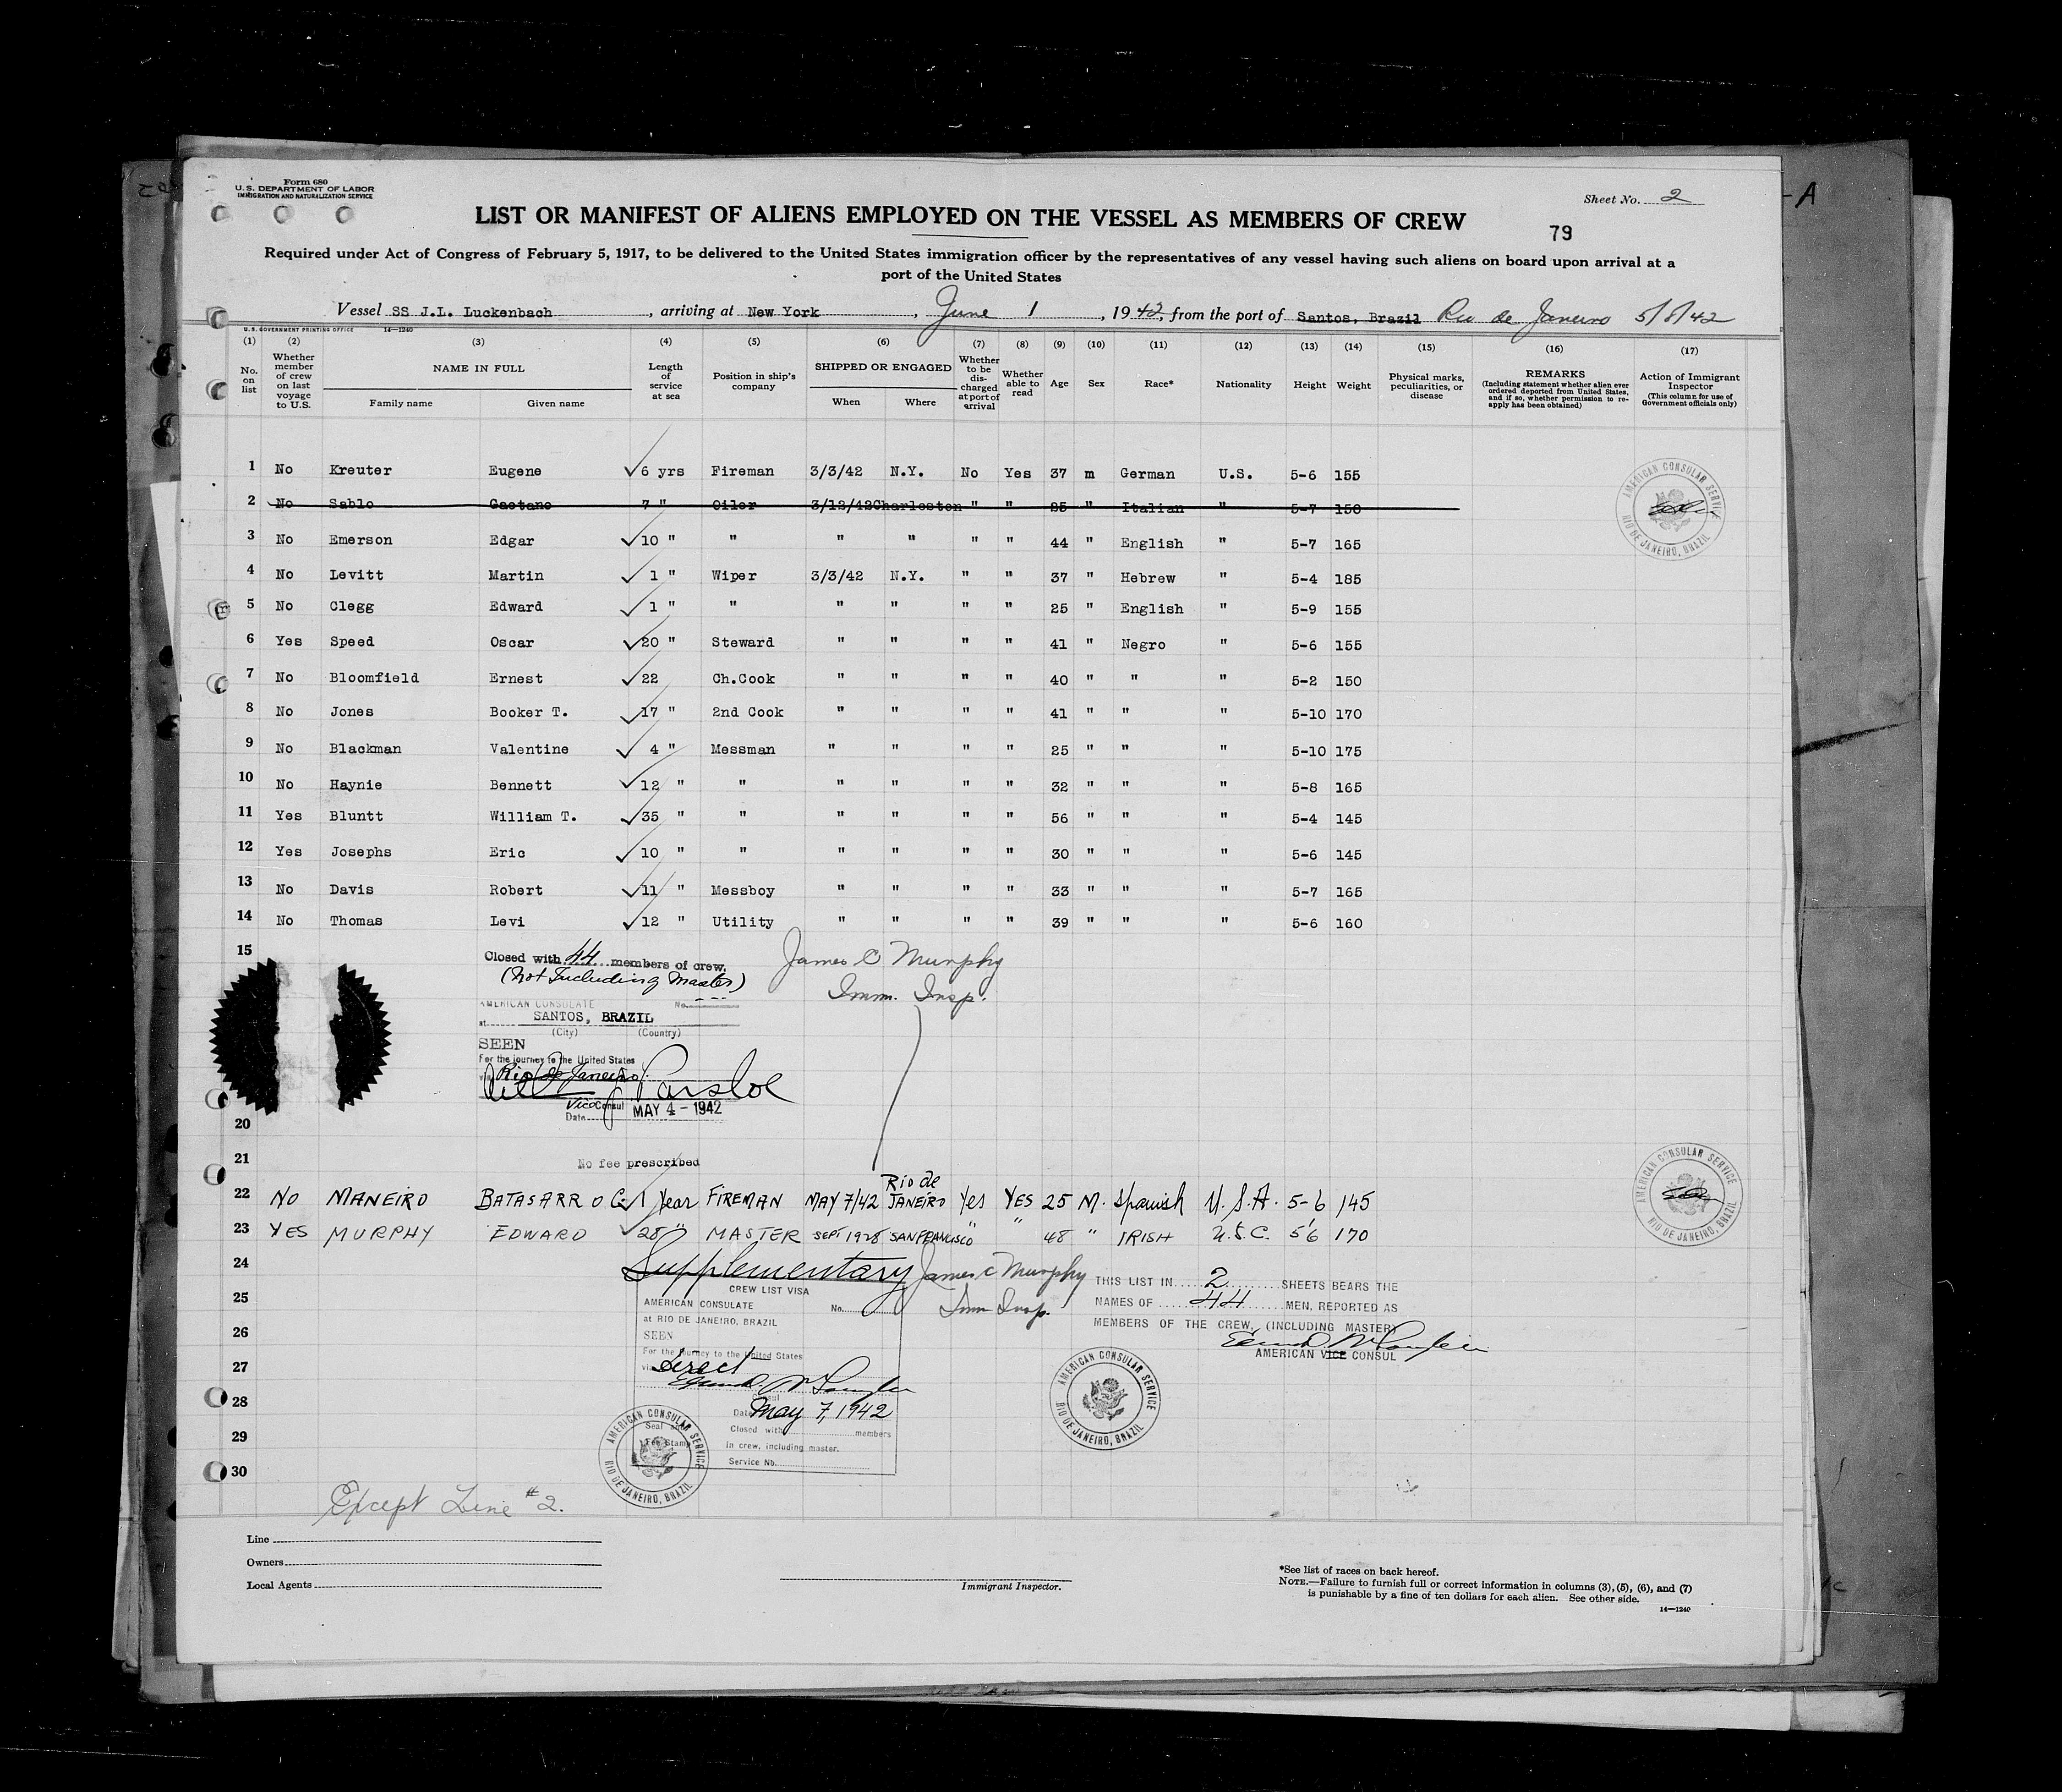 Form 680
U. S. DEPARTMENT OF LABOR
IMMIGRATION AND NATURALIZATION SERVICE
Sheet No. 2
LIST OR MANIFEST OF ALIENS EMPLOYED ON THE VESSEL AS MEMBERS OF CREW
79
Required under Act of Congress of February 5, 1917, to be delivered to the United States immigration officer by the representatives of any vessel having such aliens on board upon arrival at a
port of the United States
Vessel SS J.L. Luckenbach, arriving at New York, June 1, 1942, from the port of Santos, Brazil Rio de Janeiro 5/8/42
U. S. GOVERNMENT PRINTING OFFICE 14—1240
(1) No. on list
(2) Whether member of crew on last voyage to U.S.
(3) NAME IN FULL Family name Given name
(4) Length of service at sea
(5) Position in ship's company
(6) SHIPPED OR ENGAGED When Where
(7) Whether to be discharged at port of arrival
(8) Whether able to read
(9) Age
(10) Sex
(11) Race*
(12) Nationality
(13) Height
(14) Weight
(15) Physical marks, peculiarities, or disease
(16) REMARKS (Including statement whether alien ever ordered deported from United States, and if so, whether permission to reapply has been obtained)
(17) Action of Immigrant Inspector (This column for use of Government officials only)
1 No Kreuter Eugene 6 yrs Fireman 3/3/42 N.Y. No Yes 37 m German U.S. 5-6 155
2 No Sablo Gaetano 7 " Oiler 3/12/42 Charleston " " 25 " Italian " 5-7 150
3 No Emerson Edgar 10 " " " " " " 44 " English " 5-7 165
4 No Levitt Martin 1 " Wiper 3/3/42 N.Y. " " 37 " Hebrew " 5-4 185
5 No Clegg Edward 1 " " " " " " 25 " English " 5-9 155
6 Yes Speed Oscar 20 " Steward " " " " 41 " Negro " 5-6 155
7 No Bloomfield Ernest 22 Ch.Cook " " " " 40 " " " 5-2 150
8 No Jones Booker T. 17 " 2nd Cook " " " " 41 " " " 5-10 170
9 No Blackman Valentine 4 " Messman " " " " 25 " " " 5-10 175
10 No Haynie Bennett 12 " " " " " " 32 " " " 5-8 165
11 Yes Bluntt William T. 35 " " " " " " 56 " " " 5-4 145
12 Yes Josephs Eric 10 " " " " " " 30 " " " 5-6 145
13 No Davis Robert 11 " Messboy " " " " 33 " " " 5-7 165
14 No Thomas Levi 12 " Utility " " " " 39 " " " 5-6 160
15
Closed with 44 members of crew.
(Not Including Master)
James C Murphy
Imm. Insp.
AMERICAN CONSULATE No.
at SANTOS, BRAZIL
(City) (Country)
SEEN
For the journey to the United States
via Rio de Janeiro
Parsloe
Vice Consul
Date MAY 4 - 1942
20
21
No fee prescribed
22 NO MANEIRO BATASARRO C. 1 Year FIREMAN MAY 7/42 Rio de JANEIRO Yes YES 25 M. Spanish U.S.A. 5-6 145
23 YES MURPHY EDWARD 28 " MASTER SEPT 1928 SAN FRANCISCO " " 48 " IRISH U.S.C. 5'6 170
24
Supplementary
James C Murphy
Imm Insp.
CREW LIST VISA
25
AMERICAN CONSULATE No.
at RIO DE JANEIRO, BRAZIL
26
SEEN
For the journey to the United States
27
via direct
Consul
28
Date May 7, 1942
29
Closed with members
in crew, including master.
Service No.
30
Seal and
Fee Stamp
THIS LIST IN 2 SHEETS BEARS THE
NAMES OF 44 MEN, REPORTED AS
MEMBERS OF THE CREW, (INCLUDING MASTER)
AMERICAN VICE CONSUL
AMERICAN CONSULAR SERVICE
RIO DE JANEIRO, BRAZIL
AMERICAN CONSULAR SERVICE
RIO DE JANEIRO, BRAZIL
AMERICAN CONSULAR SERVICE
RIO DE JANEIRO, BRAZIL
AMERICAN CONSULAR SERVICE
RIO DE JANEIRO, BRAZIL
Except Line #2.
Line
Owners
Local Agents
Immigrant Inspector.
*See list of races on back hereof.
NOTE.—Failure to furnish full or correct information in columns (3), (5), (6), and (7)
is punishable by a fine of ten dollars for each alien. See other side.
14—1240